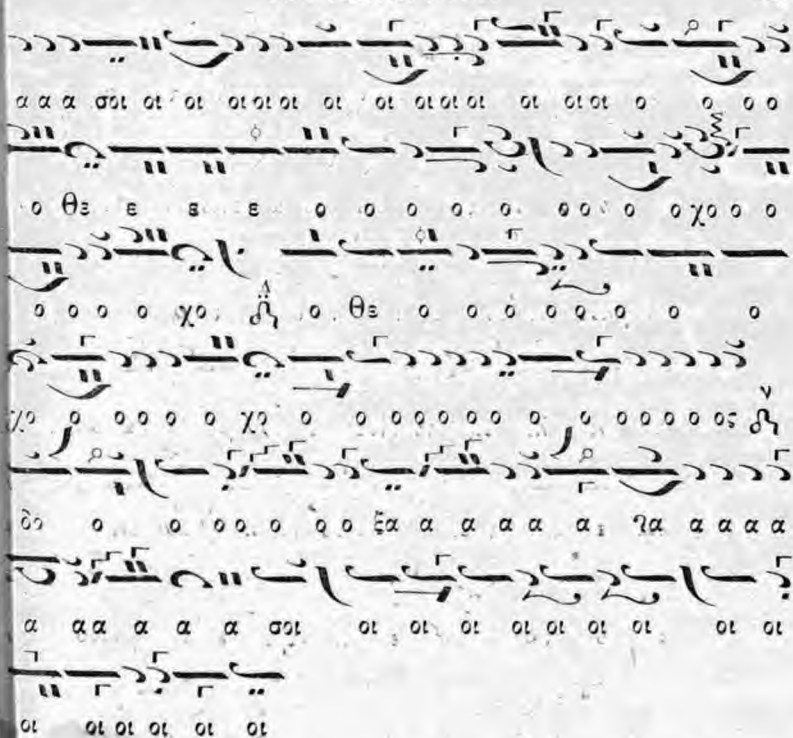 α α α σοι οι οι οι οι οι οι οι οι οι οι οι οι οι ο ο ο ο
ο θε ε ε ε ο ο ο ο ο ο ο ο ο χο ο ο
ο ο ο ο χο ο θε ο ο ο ο ο ο ο ο
χο ο ο ο ο ο χο ο ο ο ο ο ο ο ο ο ο ο ο ο ο ος
δο ο ο ο ο ο ο ο ξα α α α α α α α α α
α α α α α α σοι οι οι οι οι οι οι οι οι οι
οι οι οι οι οι οι